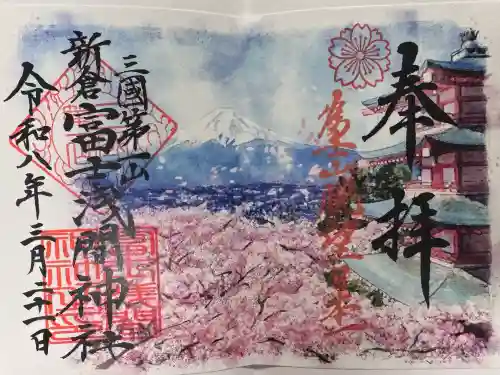 奉拝
三國第一山
新倉富士浅間神社
令和八年三月二十一日